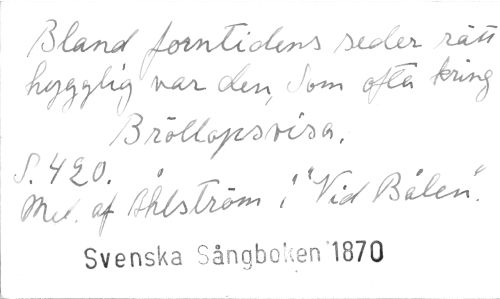 Bland forntidens seder rätt
hygglig var den, Som ofta kring
Bröllopsvisa.
S. 420.
Mel. af Åhlström i "Vid Bålen".
Svenska Sångboken 1870